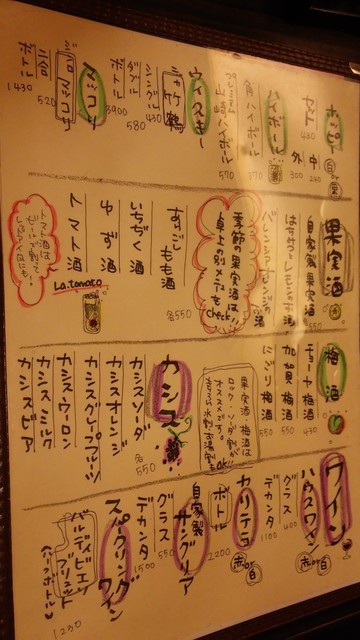 ホッピー 白 or 黒
セット 480
中 240
外 300
ハイボール 370
角ハイボール 570
山崎ハイボール
ウイスキー
竹鶴
シングル 430
ダブル 580
ボトル 3900
マッコリ
520
二合
ボトル 1430
果実酒
自家製果実酒
季節の果実酒は
卓上の別メニューを
check!
すりおろし
もも酒
いちぢく酒
ゆず酒
トマト酒
各550
La.tomato
トマト酒は
ビールで割って
梅酒
チョーヤ梅酒 430
加賀梅酒 550
にごり梅酒 550
果実酒、梅酒は
ロック、ソーダ割が
オススメです。
水割、お湯割も
OK!!
カシス
カシスソーダ
カシスオレンジ
カシスグレープフルーツ
カシスウーロン
カシスミルク
カシスビア
各550
ワイン
ハウスワイン 赤 or 白
グラス 400
デカンタ 1100
カリテラ 赤 or 白
ボトル 2200
自家製
サングリア
グラス 550
デカンタ 1500
スパークリング
ワイン
バルディビエソ
ブリュット
(ハーフボトル)
1230